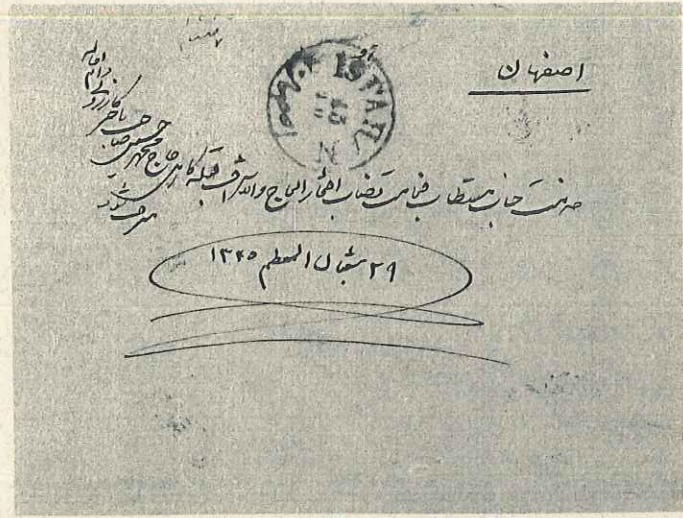 اصفهان
خدمت جناب مستطاب فخامت نصاب افتخار الحاج والاشراف قبله گاهی
حاج محمد حسین
صاحب
تاجر
کازرونی
دام اقباله
مشرف شود
۲۹ شعبان المعظم ۱۳۴۵